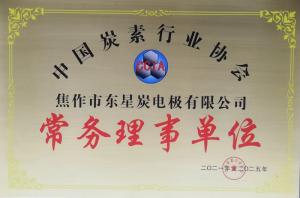 中国炭素行业协会
焦作市东星炭电极有限公司
常务理事单位
二〇二一年至二〇二五年